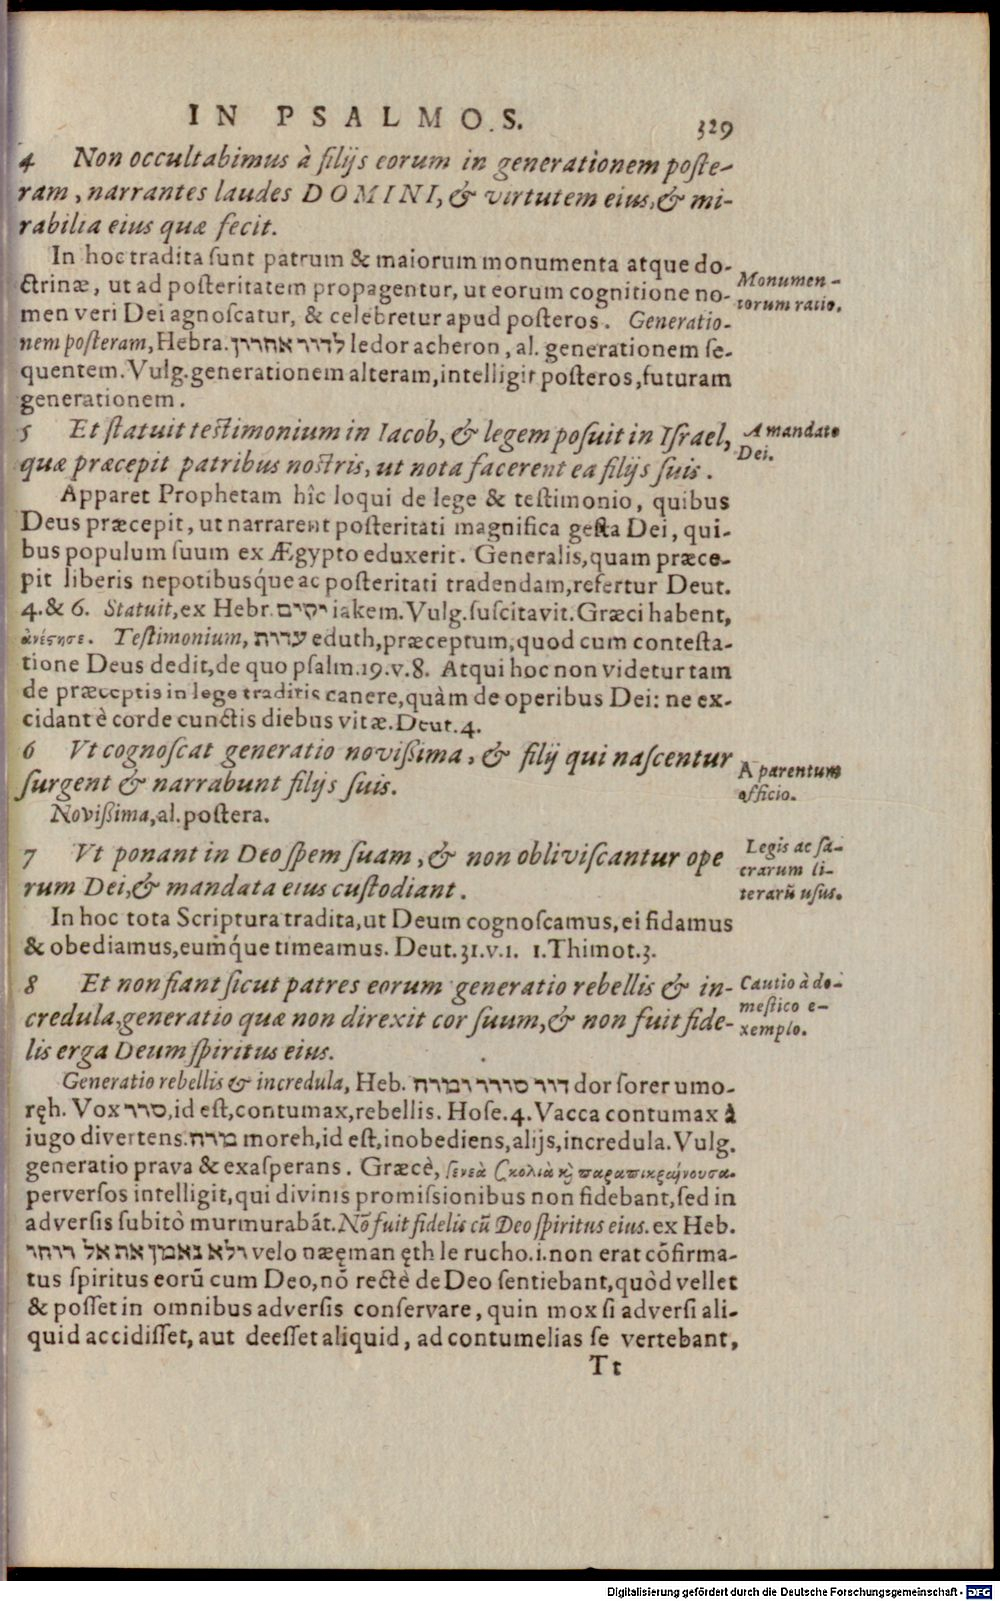 IN PSALMOS. 329
4 Non occultabimus à filijs eorum in generationem poste-
ram, narrantes laudes DOMINI, & virtutem eius, & mi-
rabilia eius quæ fecit.
In hoc tradita sunt patrum & maiorum monumenta atque do-
ctrinæ, ut ad posteritatem propagentur, ut eorum cognitione no-
Monumen-
torum ratio.
men veri Dei agnoscatur, & celebretur apud posteros. Generatio-
nem posteram, Hebra. לדור אחרון ledor acheron, al. generationem se-
quentem. Vulg. generationem alteram, intelligit posteros, futuram
generationem.
5 Et statuit testimonium in Iacob, & legem posuit in Israel,
quæ præcepit patribus nostris, ut nota facerent ea filijs suis.
A mandato
Dei.
Apparet Prophetam hîc loqui de lege & testimonio, quibus
Deus præcepit, ut narrarent posteritati magnifica gesta Dei, qui-
bus populum suum ex Ægypto eduxerit. Generalis, quam præce-
pit liberis nepotibusq́ue ac posteritati tradendam, refertur Deut.
4. & 6. Statuit, ex Hebr. יקים iakem. Vulg. suscitavit. Græci habent,
ἀνέστησε. Testimonium, עדות eduth, præceptum, quod cum contesta-
tione Deus dedit, de quo psalm. 19. v. 8. Atqui hoc non videtur tam
de præceptis in lege traditis canere, quàm de operibus Dei: ne ex-
cidant è corde cunctis diebus vitæ. Deut. 4.
6 Vt cognoscat generatio novißima, & filij qui nascentur
surgent & narrabunt filijs suis.
A parentum
officio.
Novißima, al. postera.
7 Vt ponant in Deo spem suam, & non obliviscantur ope
rum Dei, & mandata eius custodiant.
Legis ac sa-
crarum li-
terarū usus.
In hoc tota Scriptura tradita, ut Deum cognoscamus, ei fidamus
& obediamus, eumq́ue timeamus. Deut. 31. v. 1. 1. Thimot. 3.
8 Et non fiant sicut patres eorum generatio rebellis & in-
credula, generatio quæ non direxit cor suum, & non fuit fide-
lis erga Deum spiritus eius.
Cautio à do-
mestico e-
xemplo.
Generatio rebellis & incredula, Heb. דור סורר ומורה dor sorer umo-
ręh. Vox סרר, id est, contumax, rebellis. Hose. 4. Vacca contumax à
iugo divertens. מורה moreh, id est, inobediens, alijs, incredula. Vulg.
generatio prava & exasperans. Græcè, γενεὰ σκολιὰ κὶ παραπικραίνουσα.
perversos intelligit, qui divinis promissionibus non fidebant, sed in
adversis subitò murmurabāt. Nō fuit fidelis cū Deo spiritus eius. ex Heb.
ולא נאמן את אל רוחו velo næęman ęth le rucho. i. non erat cōfirma-
tus spiritus eorū cum Deo, nō rectè de Deo sentiebant, quòd vellet
& posset in omnibus adversis conservare, quin mox si adversi ali-
quid accidisset, aut deesset aliquid, ad contumelias se vertebant,
Tt
Digitalisierung gefördert durch die Deutsche Forschungsgemeinschaft - DFG